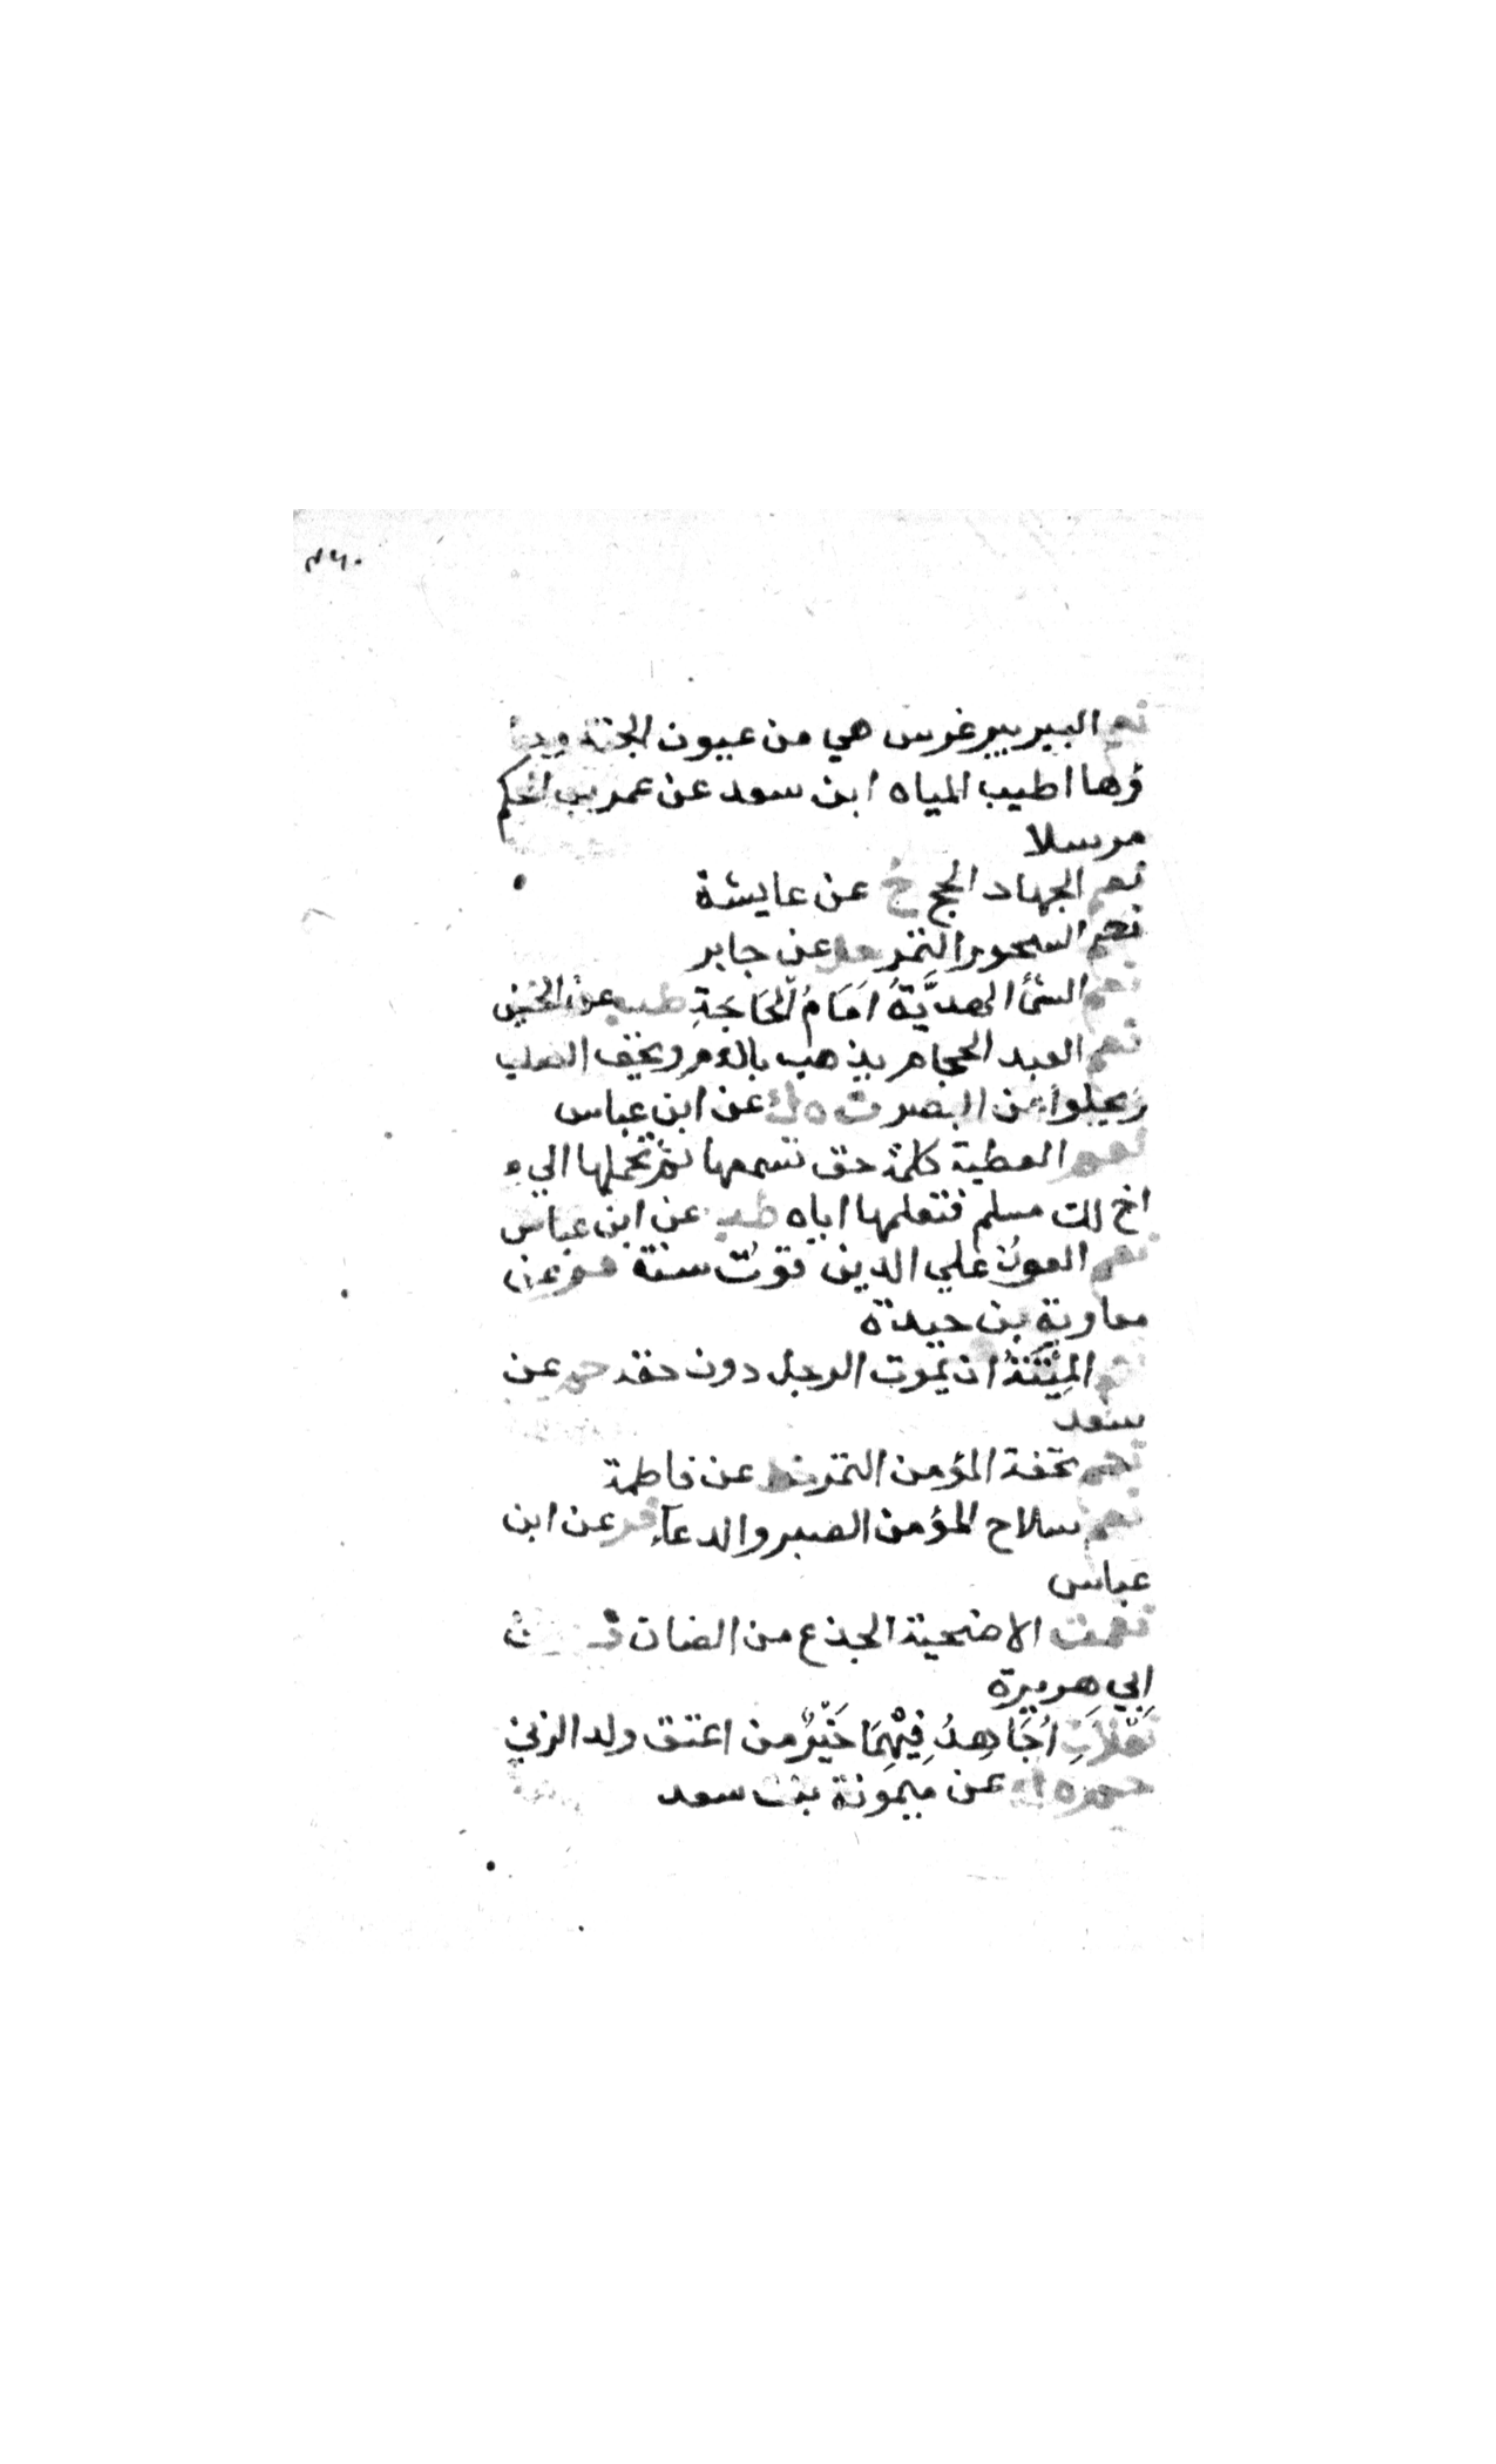 ٢٦٠
نعم البير بير غرس هي من عيون الجنة وما
ؤها اطيب المياه ابن سعد عن عمر بن الحكم
مرسلا
نعم الجهاد الحج خ عن عايشة
نعم السحور التمر حل عن جابر
نعم الشئ الهديَّةُ اَمَامُ الْحَاجَةِ طب عن الحسن
نعم العبد الحجام يذهب بالدم ويخف الصلب
ويجلوا عن البصر ت ه ك عن ابن عباس
نعم العطية كلمة حق تسمعها ثم تحملها الي
اخ لك مسلم فتعلمها اياه طب عن ابن عباس
نعم العون علي الدين قوت سنة فر عن
معاوية بن حيدة
نعم المِيْتَةُ ان يموت الرجل دون حقه حم عن
سعد
نعم تحفة المؤمن التمر خط عن فاطمة
نعم سلاح المؤمن الصبر والدعآء فر عن ابن
عباس
نعمت الاضحية الجذع من الضان ت
اَبِي هريرة
نَعْلَانِ اُجَاهِدُ فِيْهِمَا خَيْرٌ من اعتق ولد الزني
حم ه ك عن ميمونة بنت سعد